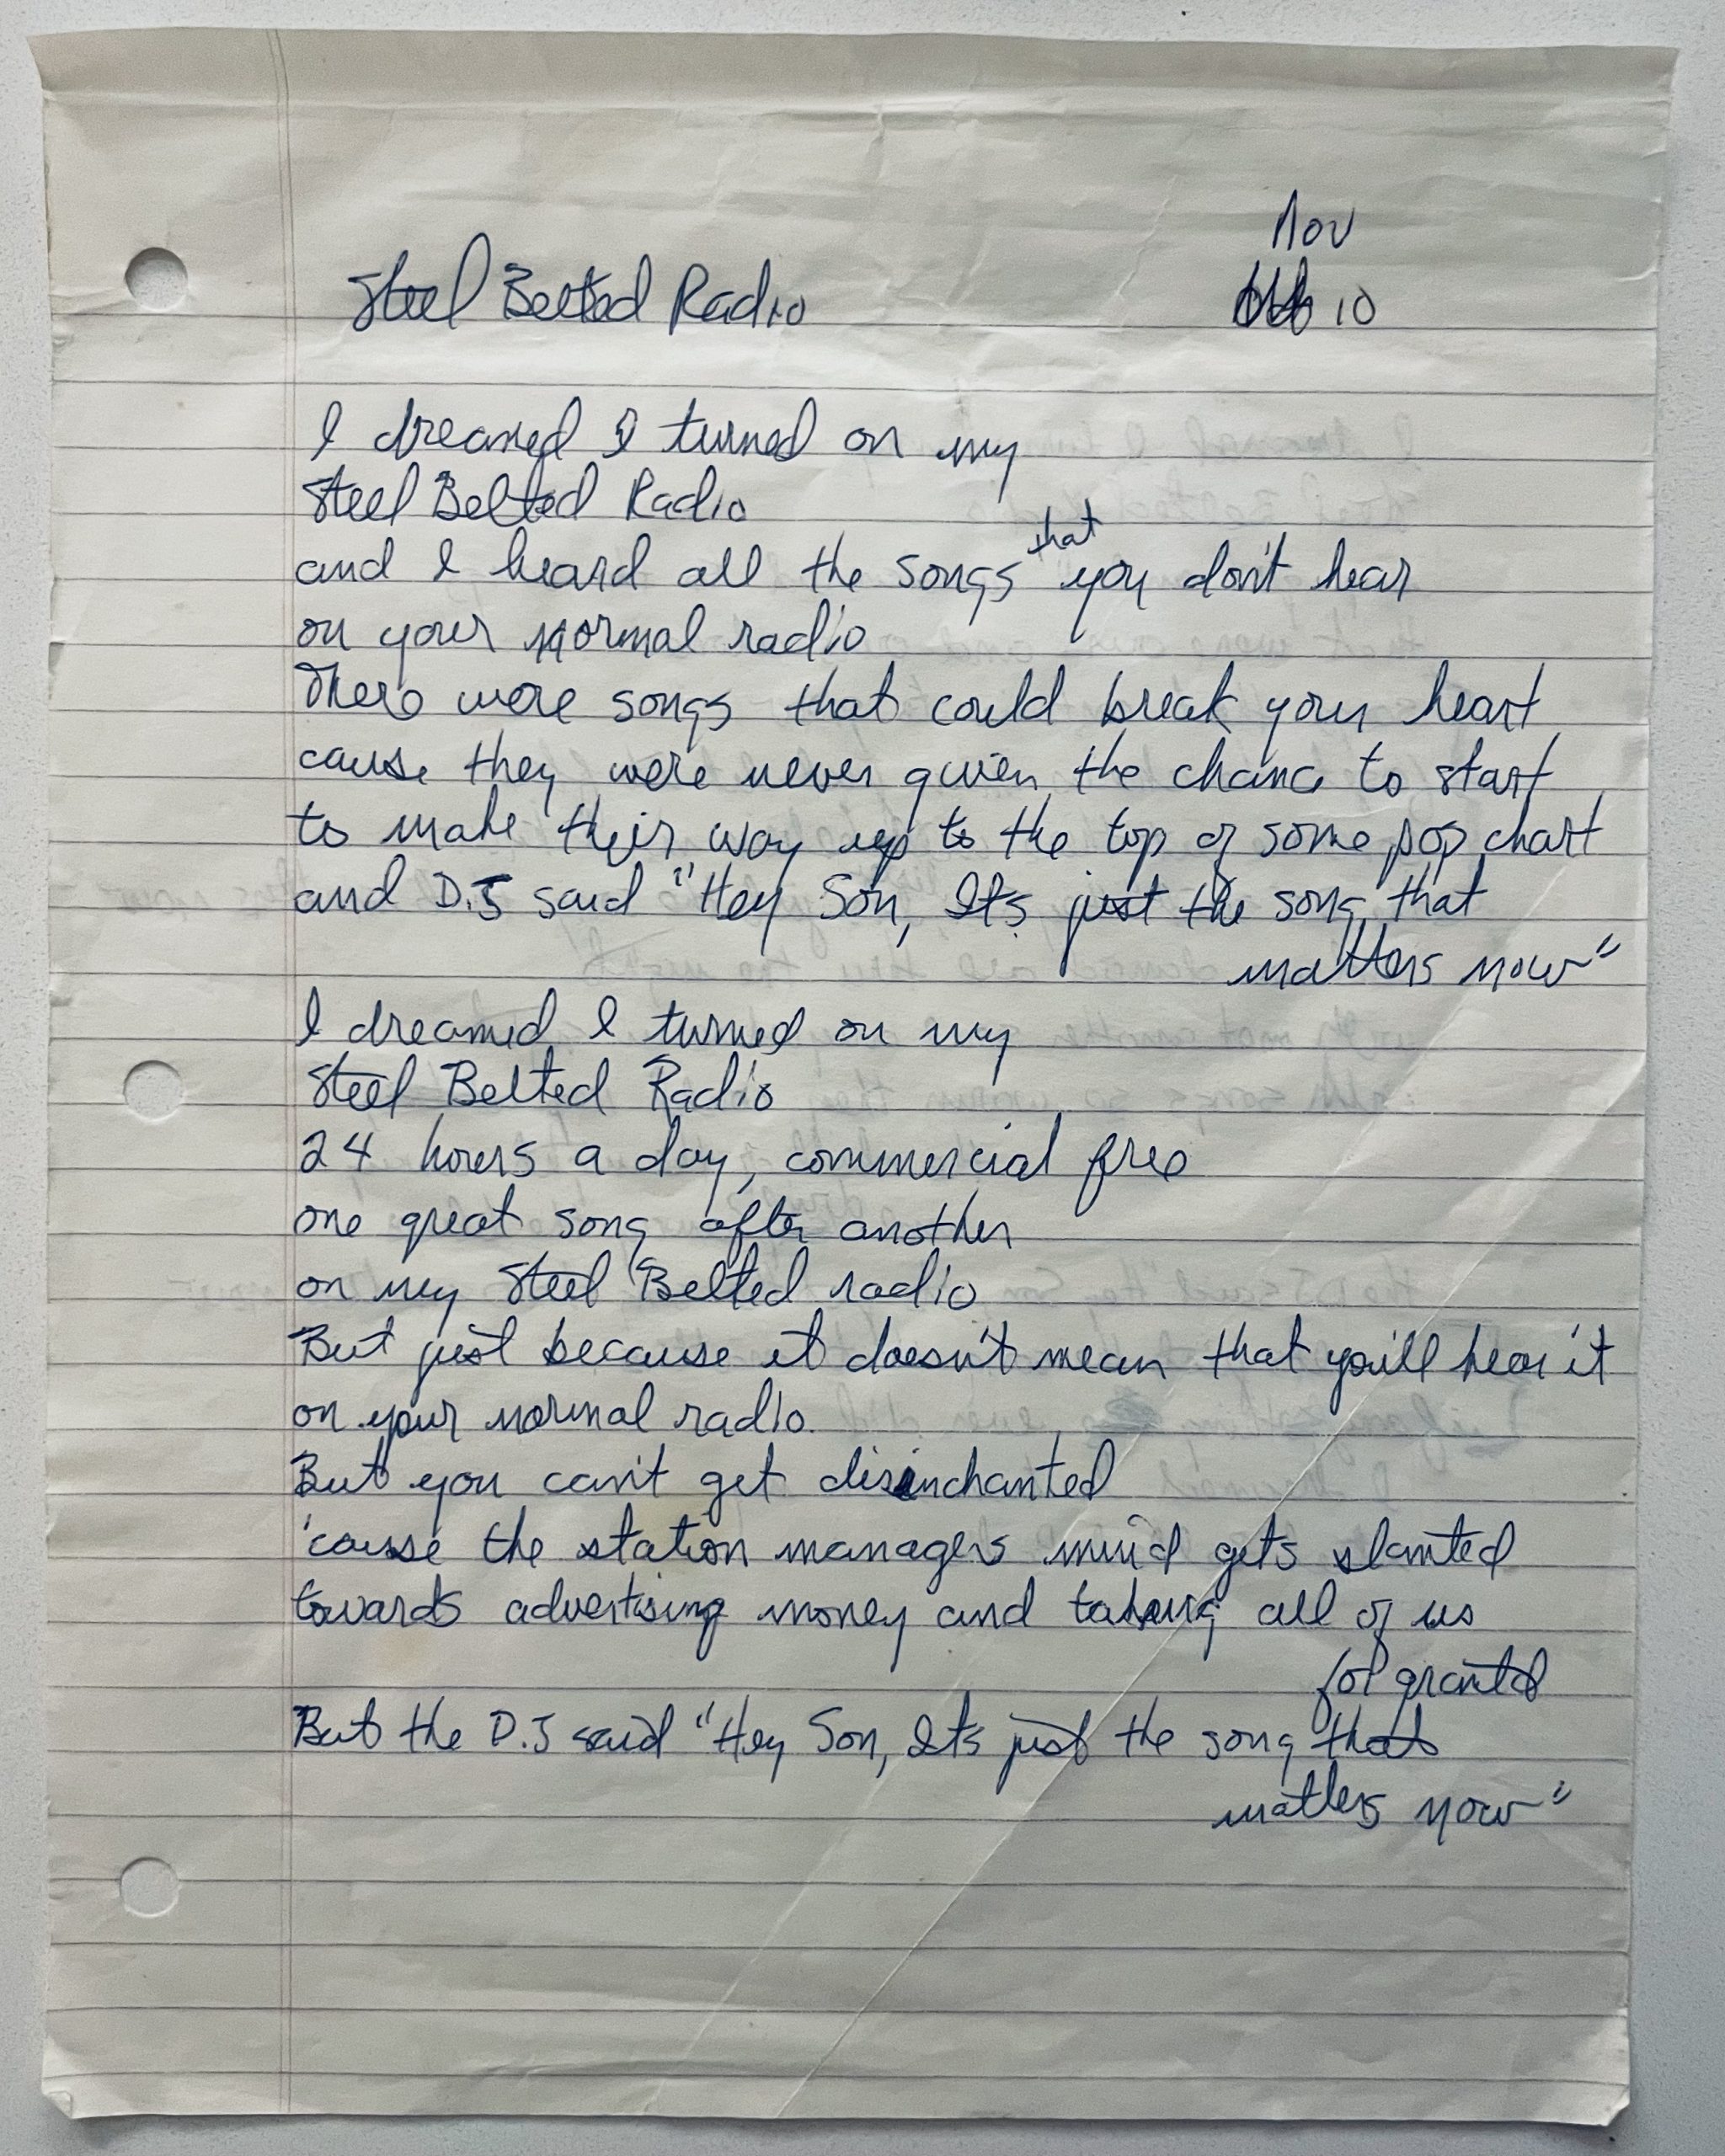 Nov
Steel Belted Radio 10
I dreamed I turned on my
Steel Belted Radio
and I heard all the songs that you don't hear
on your normal radio
There were songs that could break your heart
cause they were never given the chance to start
to make their way up to the top of some pop chart
and D.J said "Hey Son, It's just the song that
matters now"
I dreamed I turned on my
Steel Belted Radio
24 hours a day, commercial free
one great song after another
on my Steel Belted radio
But just because it doesn't mean that you'll hear it
on your normal radio.
But you can't get disinchanted
'cause the station managers mind gets slanted
towards advertising money and taking all of us
for granted
But the D.J said "Hey Son, It's just the song that
matters now"